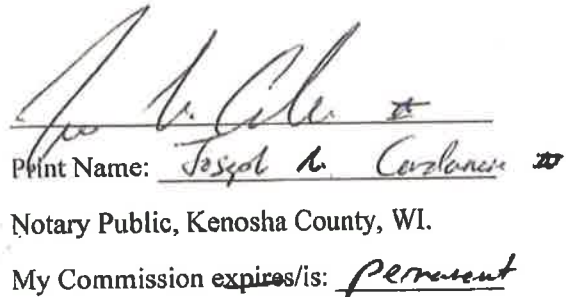 Print Name: Joseph
Notary Public, Kenosha County, WI.
My Commission expires/is: permanent